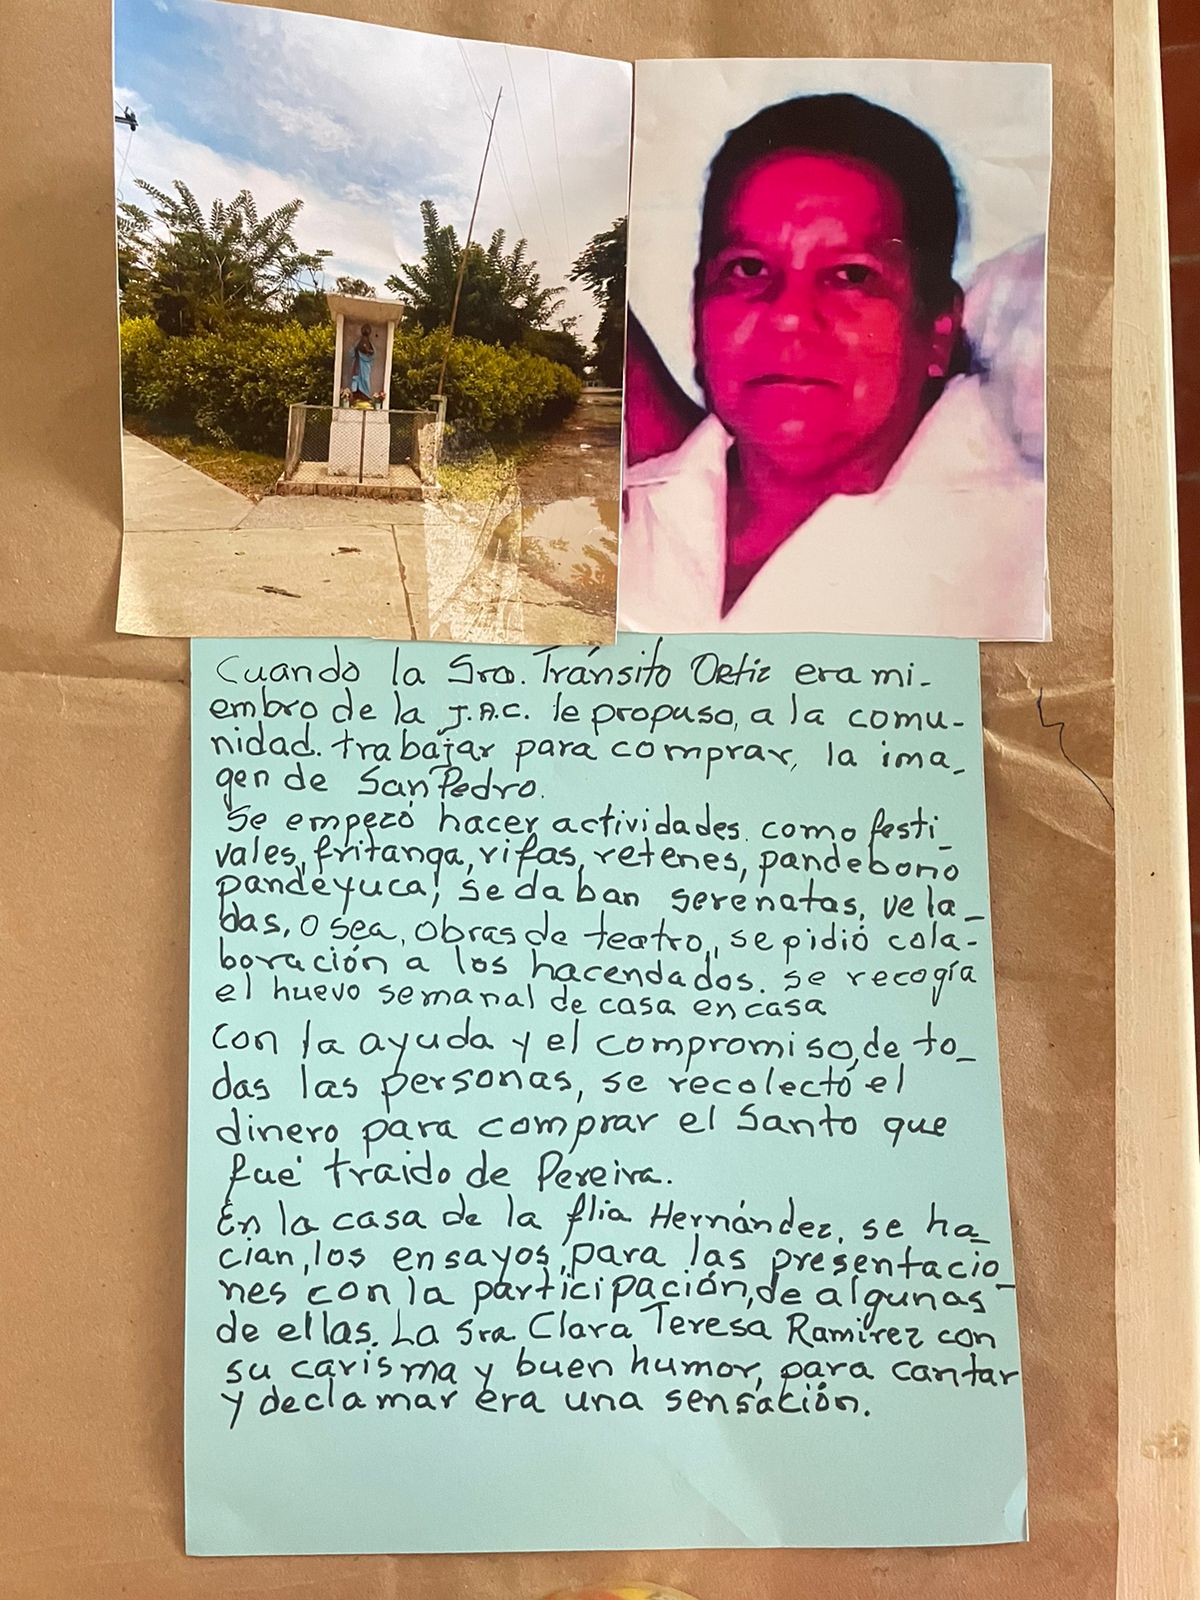 Cuando la Sra. Tránsito Ortiz era mi-
embro de la J.A.C. le propuso, a la comu-
nidad. trabajar para comprar, la ima-
gen de San Pedro.
Se empezó hacer actividades. como festi-
vales, fritanga, rifas, retenes, pandebono
pandeyuca, se daban serenatas, vela-
das, o sea, obras de teatro,, se pidió cola-
boración a los hacendados. se recogía
el huevo semanal de casa en casa
Con la ayuda y el compromiso, de to-
das las personas, se recolectó el
dinero para comprar el Santo que
fué traido de Pereira.
En la casa de la flia Hernández, se ha-
cian, los ensayos, para las presentacio-
nes con la participación, de algunas
de ellas. La Sra. Clara Teresa Ramirez con
su carisma y buen humor, para cantar
y declamar era una sensación.